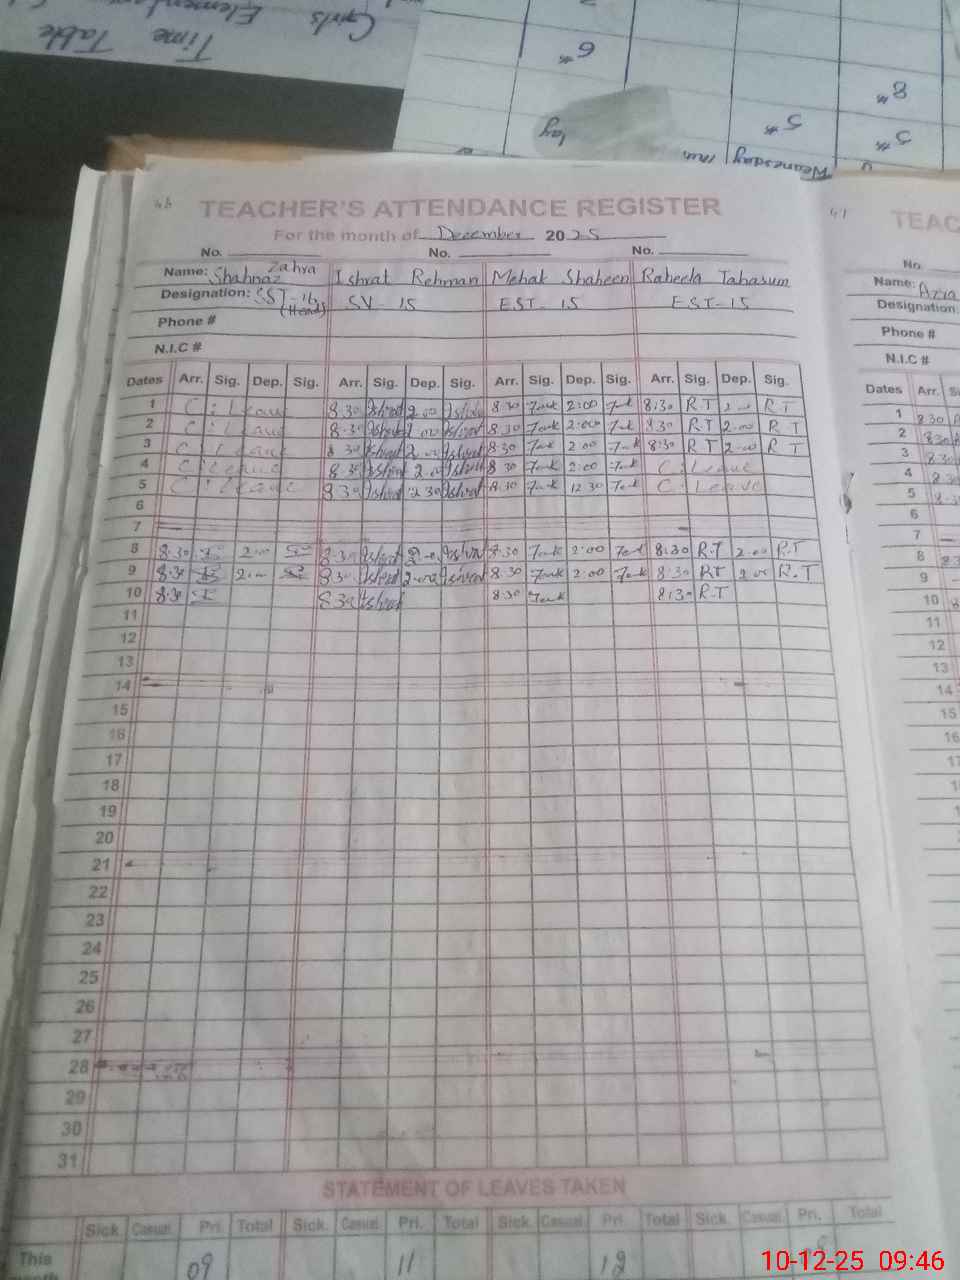 Time Table
Girls Elementary
6th
8th
5th
5th
Wednesday
46
TEACHER'S ATTENDANCE REGISTER
For the month of December 2025
No. No. No.
Name: Shahnaz Zahra Ishrat Rehman Mehak Shaheen Raheela Tabasum
Designation: SST-16 (Head) SV-15 EST-15 EST-15
Phone #
N.I.C #
Dates Arr. Sig. Dep. Sig. Arr. Sig. Dep. Sig. Arr. Sig. Dep. Sig. Arr. Sig. Dep. Sig.
1 C. Leave 8.30 Ishrat 2.00 Ishrat 8 30 2:00 8:30 R.T 2-00 R T
2 C. Leave 8.30 Ishrat 2.00 Ishrat 8.30 2:00 8.30 R T 2-00 R T
3 C. Leave 8 30 Ishrat 2.00 Ishrat 8:30 2 00 8:30 R T 2-00 R T
4 C. Leave 8.30 Ishrat 2.00 Ishrat 8 30 2:00 C. Leave
5 C. Leave 8.30 Ishrat 12.30 Ishrat 8.30 12 30 C. Leave
6
7
8 8.30 2.00 8.30 Ishrat 2.00 Ishrat 8.30 2:00 8:30 R.T 2.00 R.T
9 8.30 2.00 8.30 Ishrat 2.00 Ishrat 8.30 2:00 8.30 RT 2.00 R.T
10 8.30 8.30 Ishrat 8.30 8:30 R.T
11
12
13
14
15
16
17
18
19
20
21
22
23
24
25
26
27
28
29
30
31
STATEMENT OF LEAVES TAKEN
Sick Casual Pri. Total Sick. Casual Pri. Total Sick. Casual Pri. Total Sick. Casual Pri. Total
This month 09 11 12
47
TEAC
No.
Name:
Designation
Phone #
N.I.C #
Dates Arr.
1 8.30
2 8.30
3 8.30
4 8.30
5 8.30
6
7
8 8.3
9
10 8
11
12
13
14
15
16
17
10-12-25 09:46